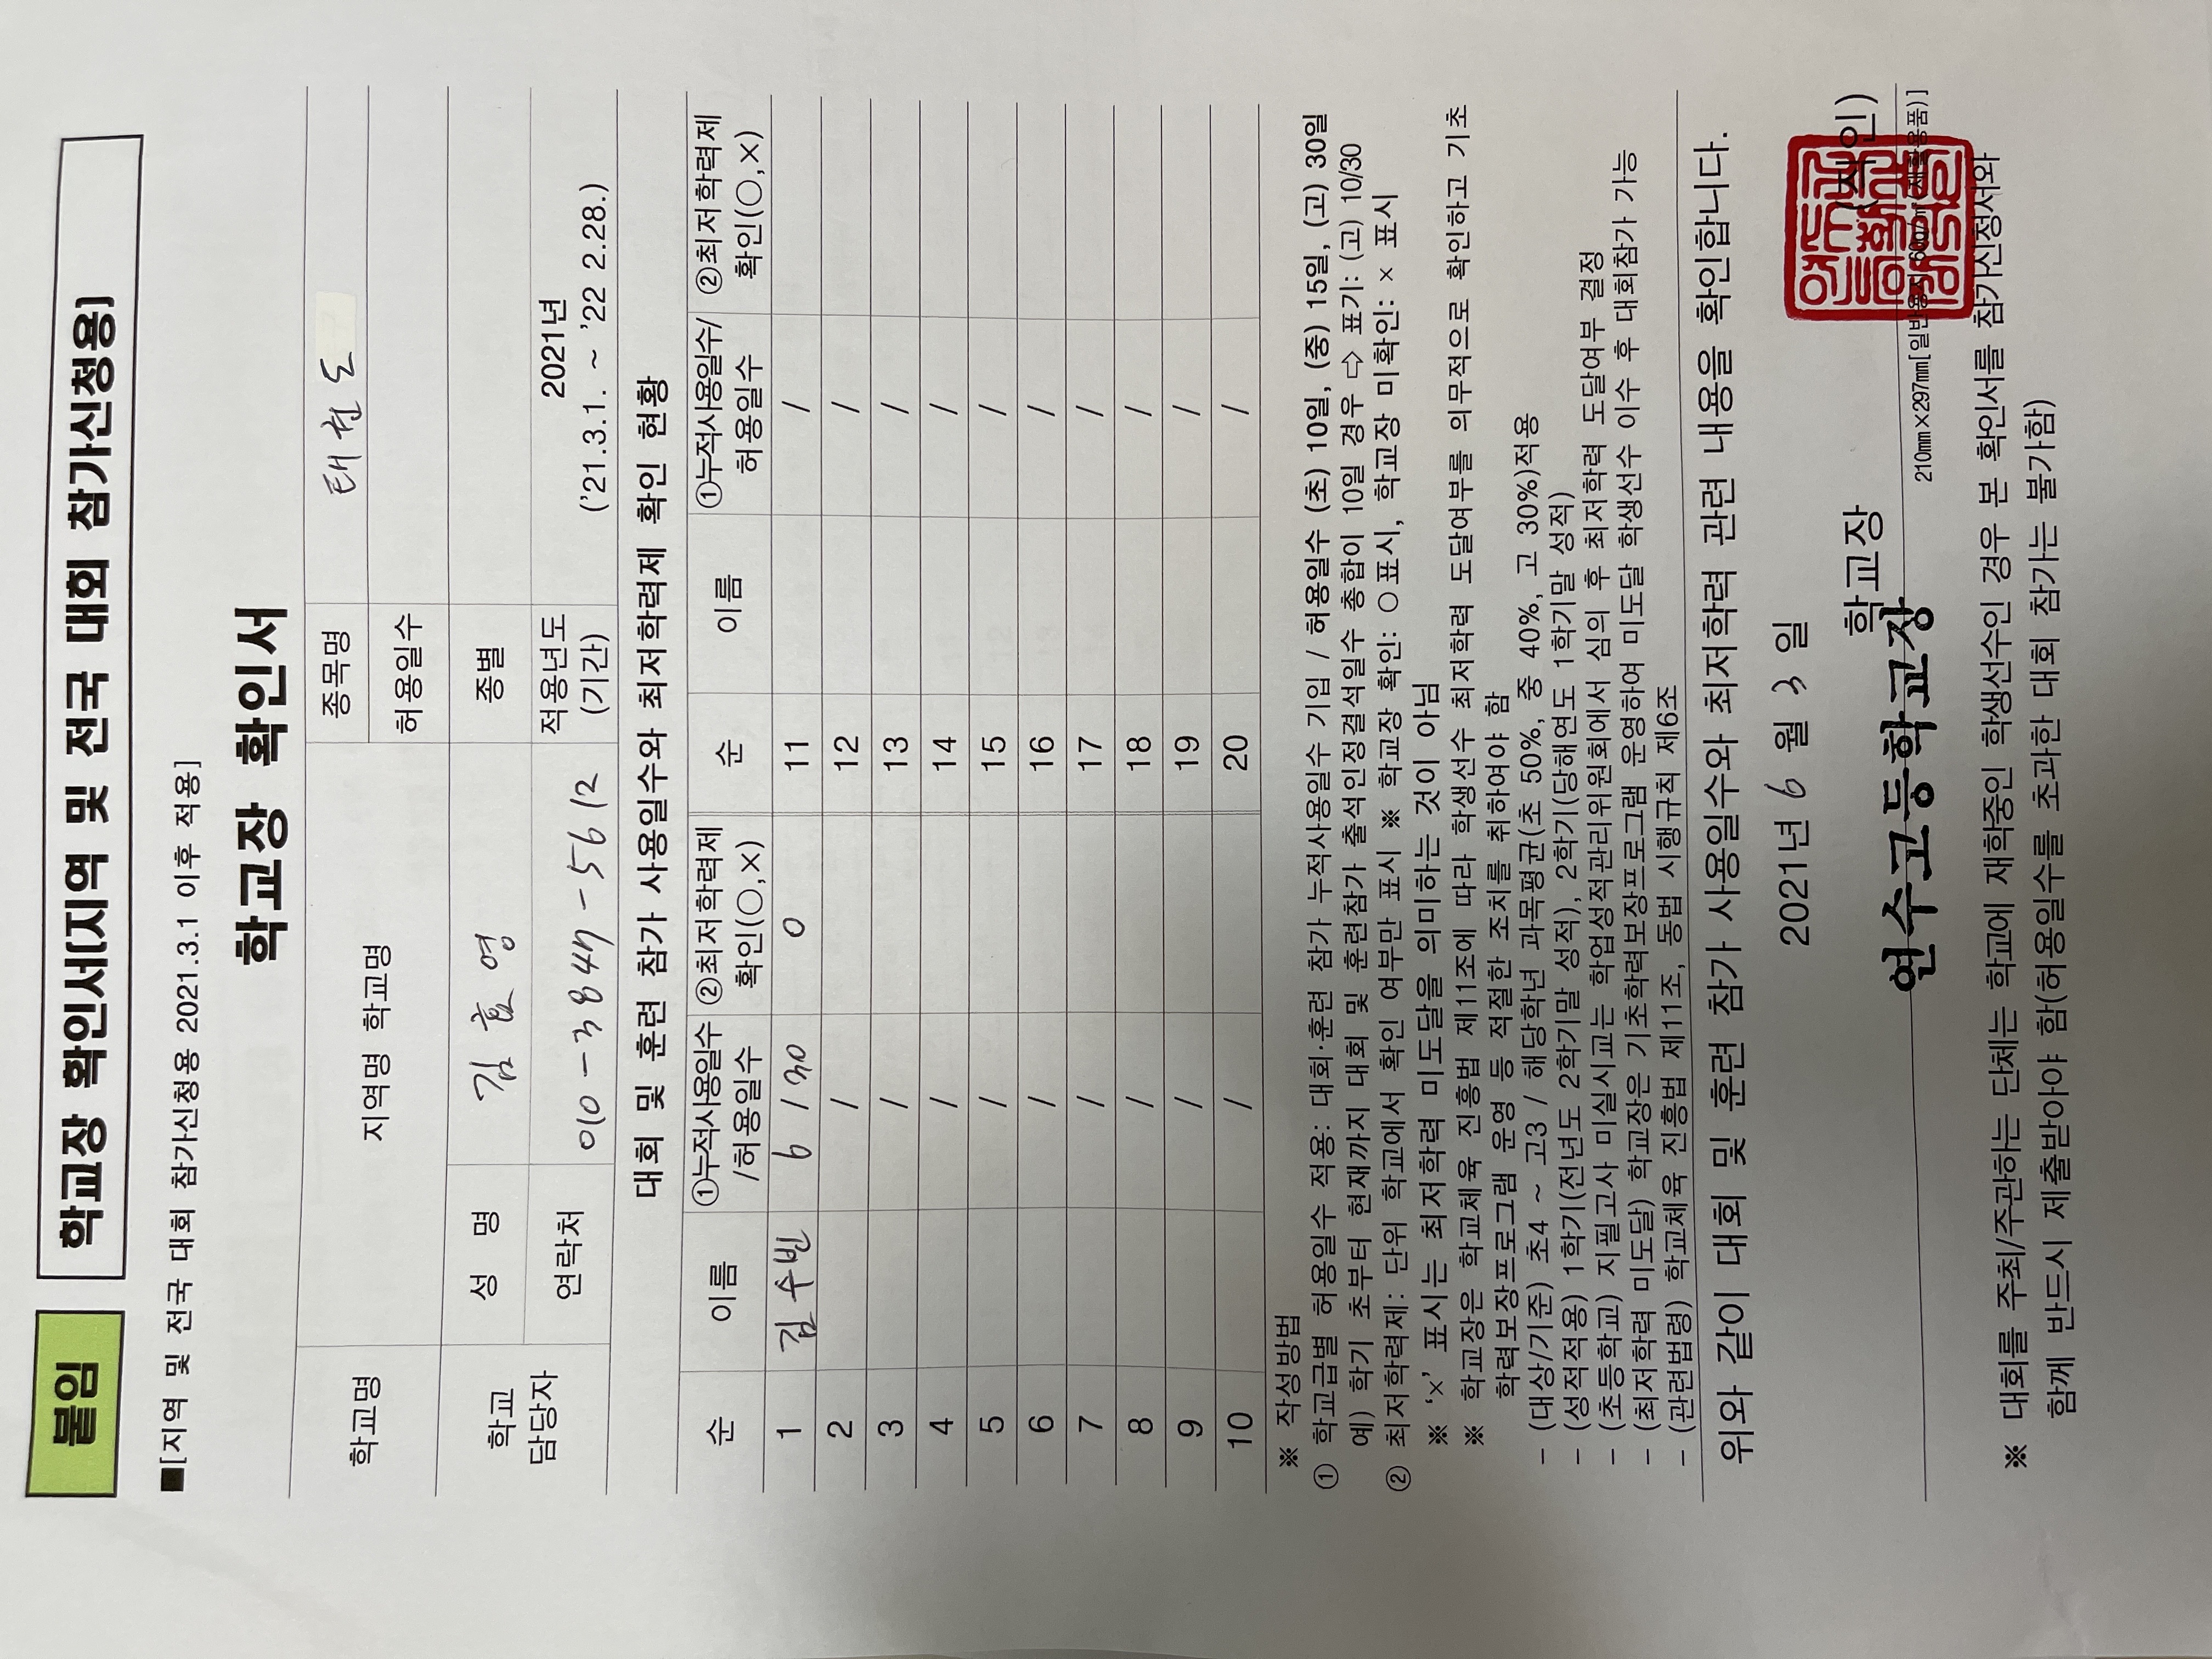 붙임
학교장 확인서(지역 및 전국 대회 참가신청용)
■[지역 및 전국 대회 참가신청용 2021.3.1 이후 적용]
학교장 확인서
학교명 지역명 학교명 종목명 태권도
허용일수
학교 담당자 성 명 김효영 종별
연락처 010-3847-5612 적용년도 (기간) 2021년
('21.3.1. ~ '22 2.28.)
대회 및 훈련 참가 사용일수와 최저학력제 확인 현황
순 이름 ①누적사용일수 /허용일수 ②최저학력제 확인(○,×) 순 이름 ①누적사용일수/ 허용일수 ②최저학력제 확인(○,×)
1 김수빈 6 / 30 0 11 /
2 / 12 /
3 / 13 /
4 / 14 /
5 / 15 /
6 / 16 /
7 / 17 /
8 / 18 /
9 / 19 /
10 / 20 /
※ 작성방법
① 학교급별 허용일수 적용: 대회·훈련 참가 누적사용일수 기입 / 허용일수 (초) 10일, (중) 15일, (고) 30일
예) 학기 초부터 현재까지 대회 및 훈련참가 출석인정결석일수 총합이 10일 경우 ⇨ 표기: (고) 10/30
② 최저학력제: 단위 학교에서 확인 여부만 표시 ※ 학교장 확인: ○표시, 학교장 미확인: × 표시
※ '×' 표시는 최저학력 미도달을 의미하는 것이 아님
※ 학교장은 학교체육 진흥법 제11조에 따라 학생선수 최저학력 도달여부를 의무적으로 확인하고 기초
학력보장프로그램 운영 등 적절한 조치를 취하여야 함
- (대상/기준) 초4 ~ 고3 / 해당학년 과목평균(초 50%, 중 40%, 고 30%)적용
- (성적적용) 1학기(전년도 2학기말 성적), 2학기(당해연도 1학기말 성적)
- (초등학교) 지필고사 미실시교는 학업성적관리위원회에서 심의 후 최저학력 도달여부 결정
- (최저학력 미도달) 학교장은 기초학력보장프로그램 운영하여 미도달 학생선수 이수 후 대회참가 가능
- (관련법령) 학교체육 진흥법 제11조, 동법 시행규칙 제6조
위와 같이 대회 및 훈련 참가 사용일수와 최저학력 관련 내용을 확인합니다.
2021년 6 월 3 일
학교장 (직인)
연수고등학교장
210mm×297mm[일반용지 60g/㎡(재활용품)]
※ 대회를 주최/주관하는 단체는 학교에 재학중인 학생선수인 경우 본 확인서를 참가신청서와
함께 반드시 제출받아야 함(허용일수를 초과한 대회 참가는 불가함)